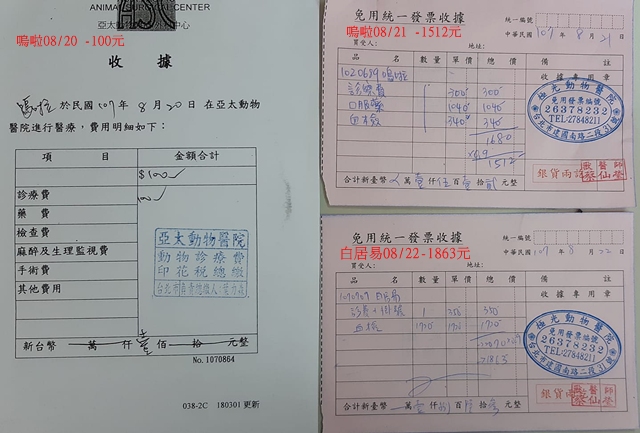 ANIMAL SURGICAL CENTER
嗚啦08/20 -100元
收據
嗚啦 於民國 107 年 8 月 20 日 在亞太動物
醫院進行醫療，費用明細如下：
項 目 金額合計
$100
診療費 100
藥 費
檢查費
麻醉及生理監視費
手術費
其他費用
亞太動物醫院
動物診療費
印花稅總繳
新台幣 萬 仟 壹 佰 拾 元整
No. 1070864
038-2C 180301 更新
免用統一發票收據
嗚啦08/21 -1512元
統一編號
買受人： 地址：
中華民國 107 年 8 月 21 日
品名 數量 單價 總價 備註
收據專用章
1020679 嗚啦
診療費 300 300
口服藥 1040 1040
340 340
1680
1512
極光動物醫院
免用發票編號
26378232
TEL:27848211
台北市建國南路二段31號
銀貨兩訖
合計新臺幣 萬 壹 仟 伍 百 壹 拾 貳 元整
免用統一發票收據
白居易08/22 -1863元
統一編號
買受人： 地址：
中華民國 107 年 8 月 22 日
品名 數量 單價 總價 備註
收據專用章
白居易
1 350 350
1720 1720
1863
極光動物醫院
免用發票編號
26378232
TEL:27848211
台北市建國南路二段31號
銀貨兩訖
合計新臺幣 萬 壹 仟 捌 百 陸 拾 參 元整